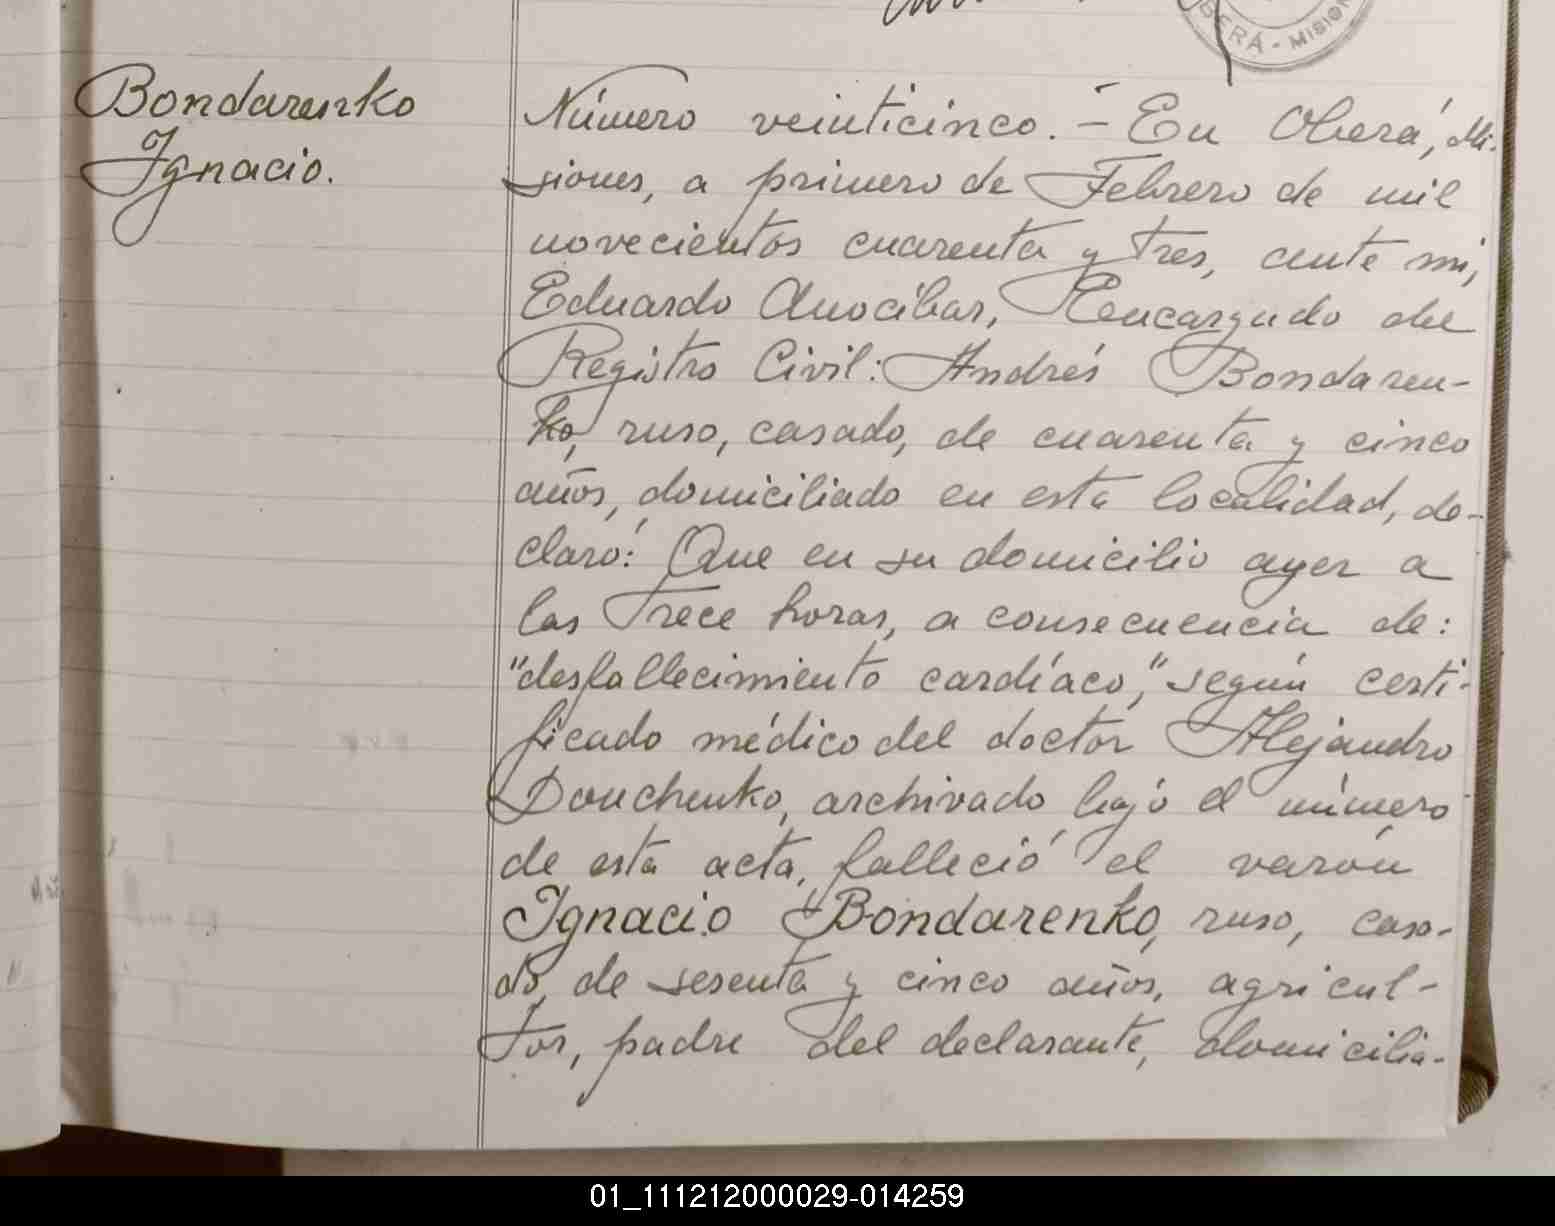 BERÁ - MISION
Bondarenko
Ignacio.
Número veinticinco. - En Oberá, Mi-
siones, a primero de Febrero de mil
novecientos cuarenta y tres, ante mi,
Eduardo Anocíbar, Encargado del
Registro Civil: Andrés Bondaren-
ko, ruso, casado, de cuarenta y cinco
años, domiciliado en esta localidad, de-
claró: Que en su domicilio ayer a
las trece horas, a consecuencia de:
"desfallecimiento cardíaco," según certi-
ficado médico del doctor Alejandro
Douchenko, archivado bajo el número
de esta acta, falleció el varón
Ignacio Bondarenko, ruso, casa-
do, de sesenta y cinco años, agricul-
tor, padre del declarante, domicilia-
01_111212000029-014259